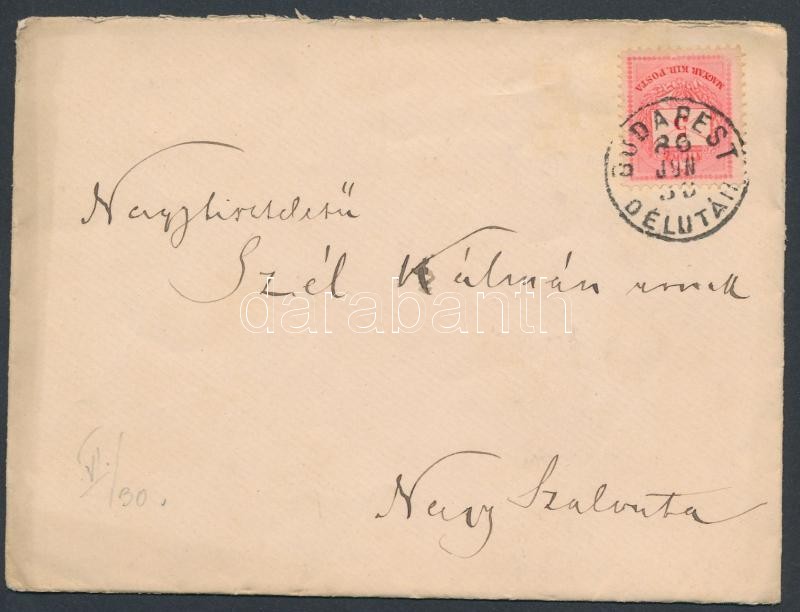 MAGYAR KIR. POSTA
5
BUDAPEST
JUN
30
DÉLUTÁN
Nagytiszteletű
Szél Kálmán urnak
darabanth
VI./30.
Nagy Szalonta